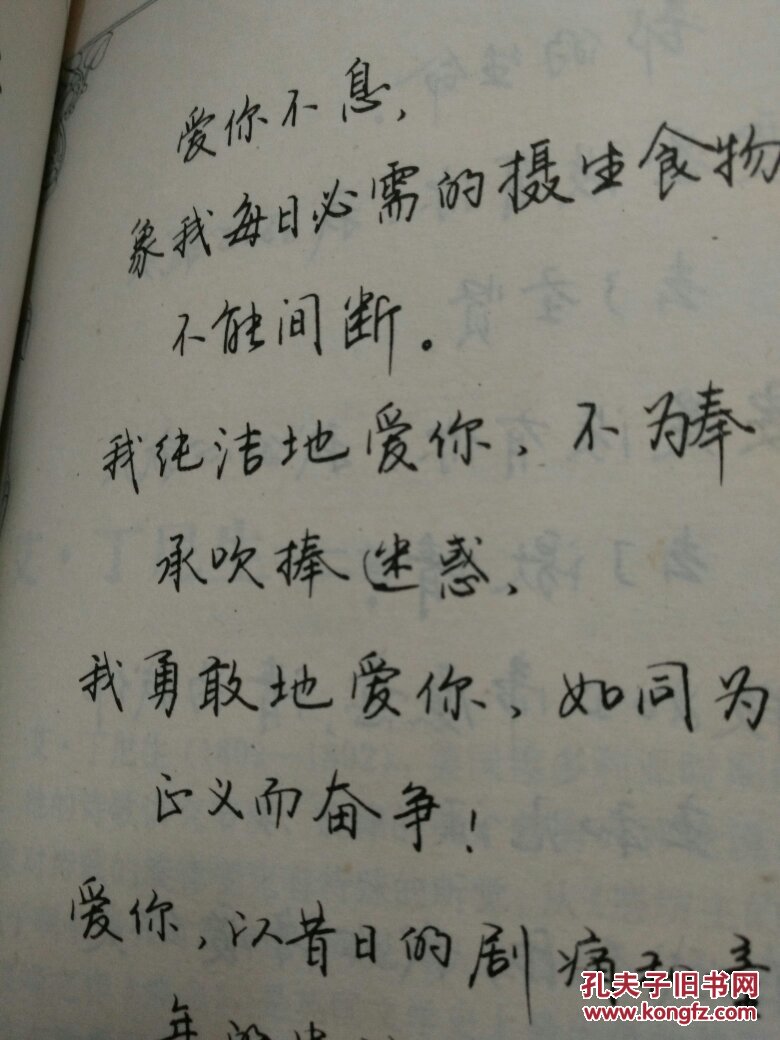 爱你不息,
象我每日必需的摄生食物
不能间断。
我纯洁地爱你,不为奉
承吹捧迷惑、
我勇敢地爱你、如同为
正义而奋争!
爱你,以昔日的剧痛和童
年的忠
孔夫子旧书网
www.kongfz.com